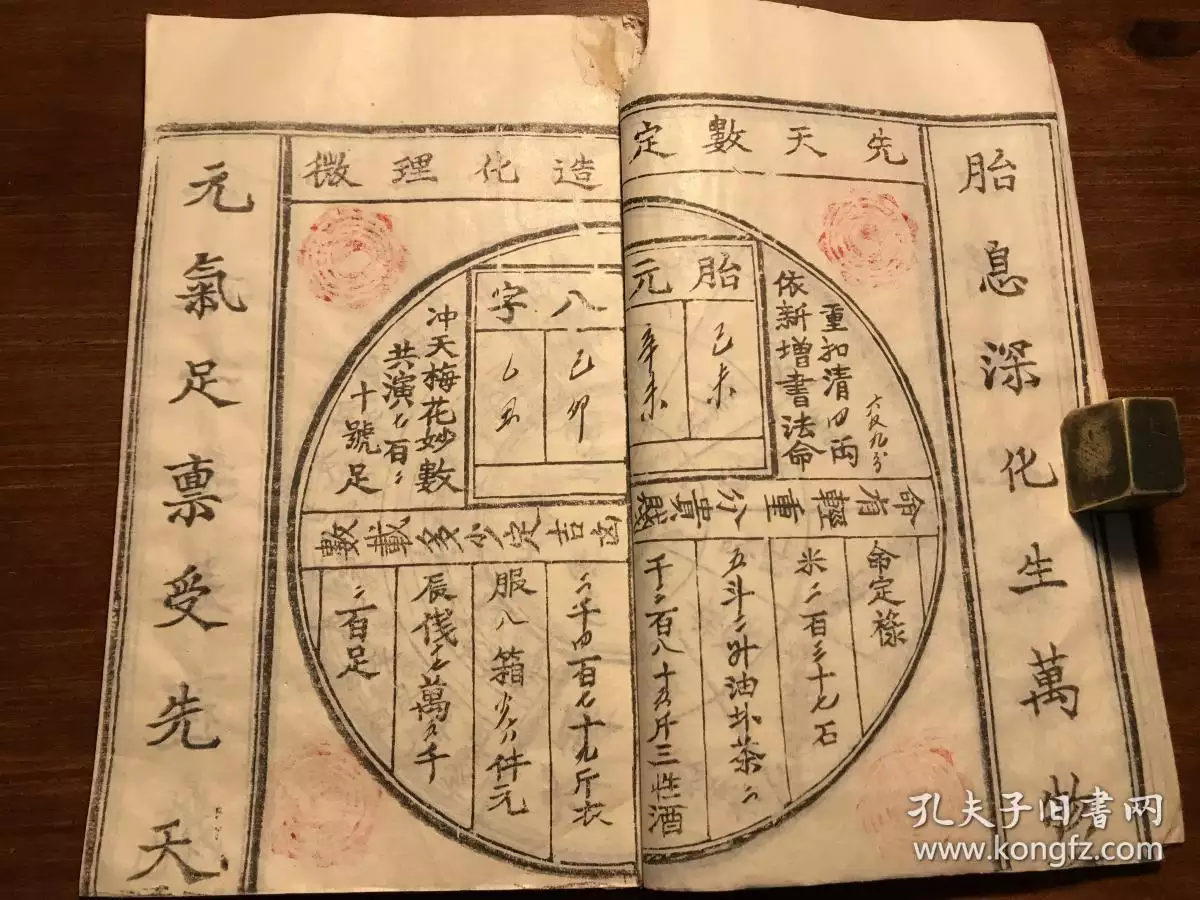 胎息深化生萬物
先天數定
造化理微
重扣清四兩
依新增書法命
胎元
己未
辛未
八字
己卯
乙丑
冲天梅花妙數
共演七百
十號足
命有輕重分貴賤
數載多少定吉凶
命定祿
米二百三十七石
五斗二升油茶二
千二百八十五斤三牲酒
二千四百七十九斤衣
服八箱件元
辰萬五千
二百足
元氣足稟受先天
孔夫子旧書网
www.kongfz.com